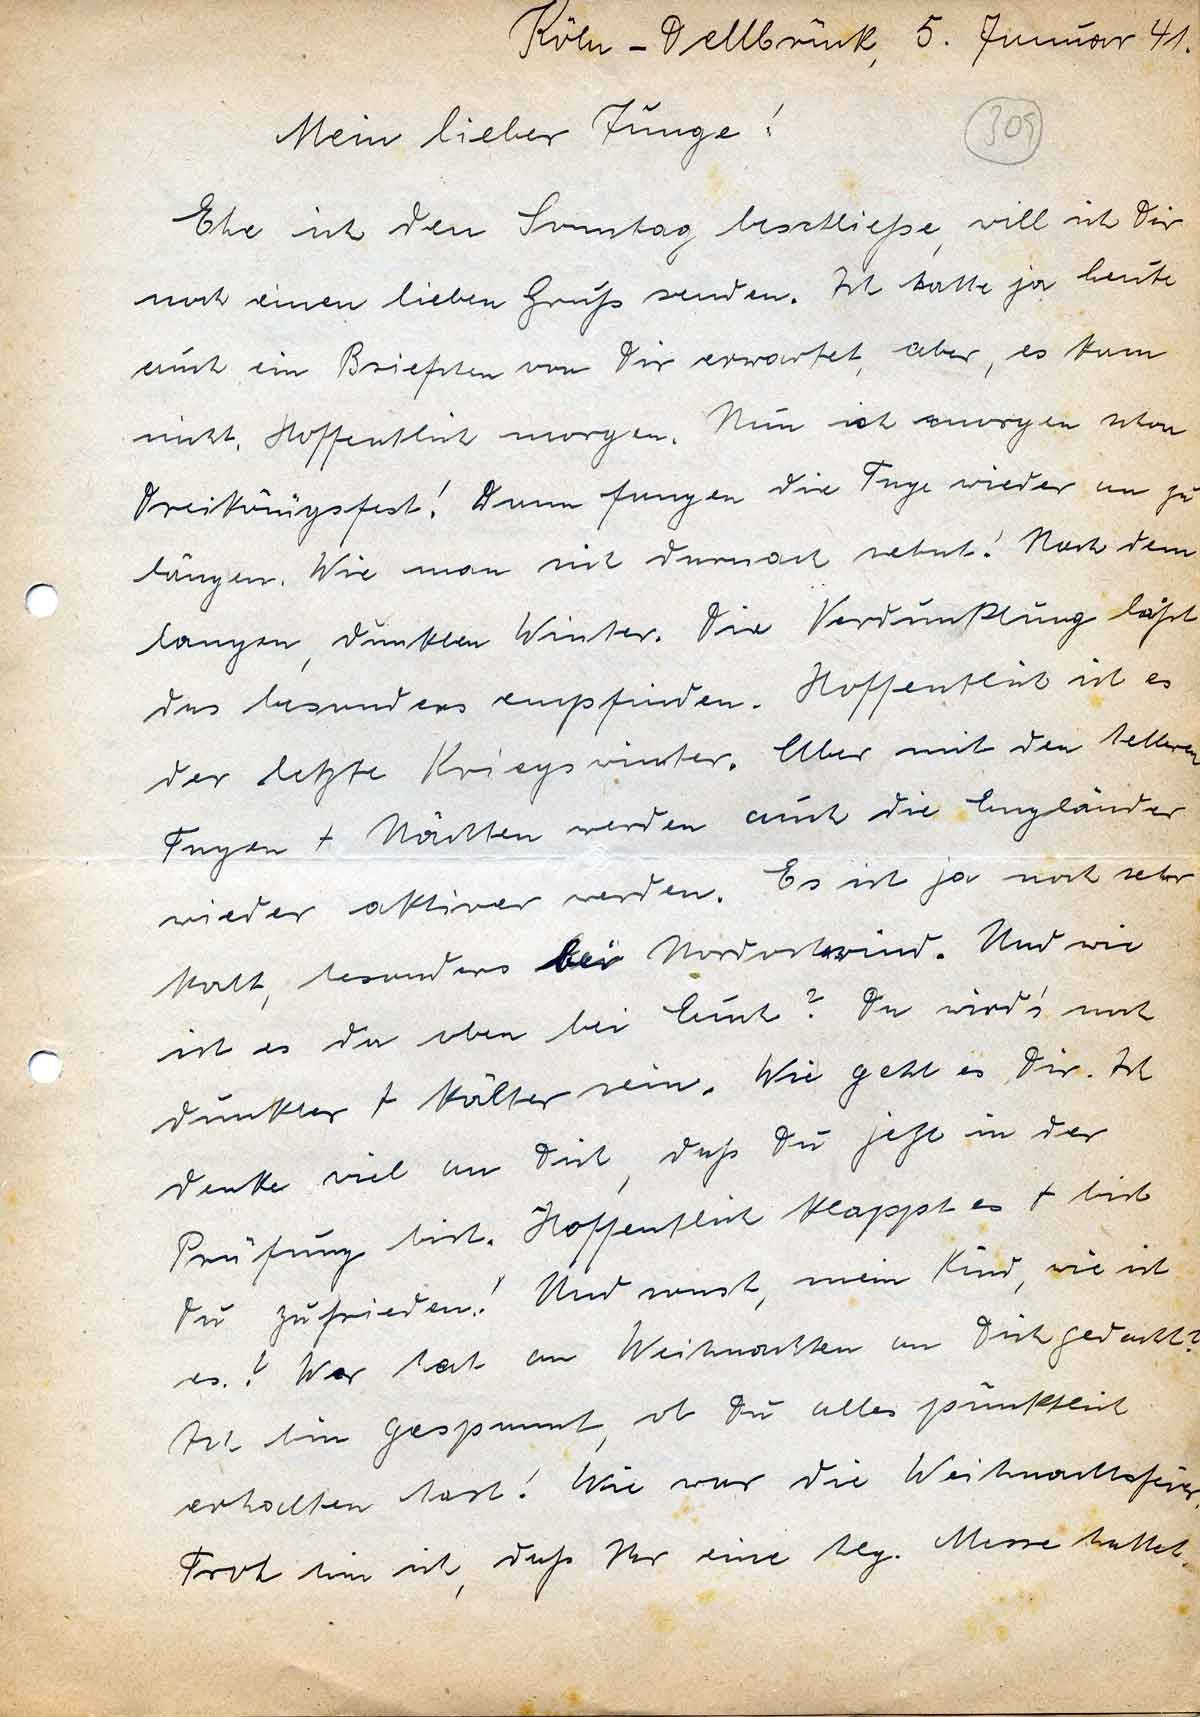 Köln-Dellbrück, 5. Januar 41.
309
Mein lieber Junge!
Ehe ich den Sonntag beschließe, will ich Dir
noch einen lieben Gruß senden. Ich hatte ja heute
auch ein Briefchen von Dir erwartet, aber, es kam
nicht. Hoffentlich morgen. Nun ist morgen schon
Dreikönigsfest! Dann fangen die Tage wieder an zu
längen. Wie man sich darnach sehnt! Nach dem
langen, dunklen Winter. Die Verdunklung läßt
das besonders empfinden. Hoffentlich ist es
der letzte Kriegswinter. Aber mit den helleren
Tagen + Nächten werden auch die Engländer
wieder aktiver werden. Es ist ja noch sehr
kalt, besonders bei Nordostwind. Und wie
ist es da oben bei Euch? Da wird's noch
dunkler + kälter sein. Wie geht es Dir. Ich
denke viel an Dich, daß Du jetzt in der
Prüfung bist. Hoffentlich klappt es + bist
Du zufrieden! Und sonst, mein Kind, wie ist
es.? Wer hat an Weihnachten an Dich gedacht?
Ich bin gespannt, ob Du alles pünktlich
erhalten hast! Wie war die Weihnachtsfeier.
Froh bin ich, daß Ihr eine hlg. Messe hattet.